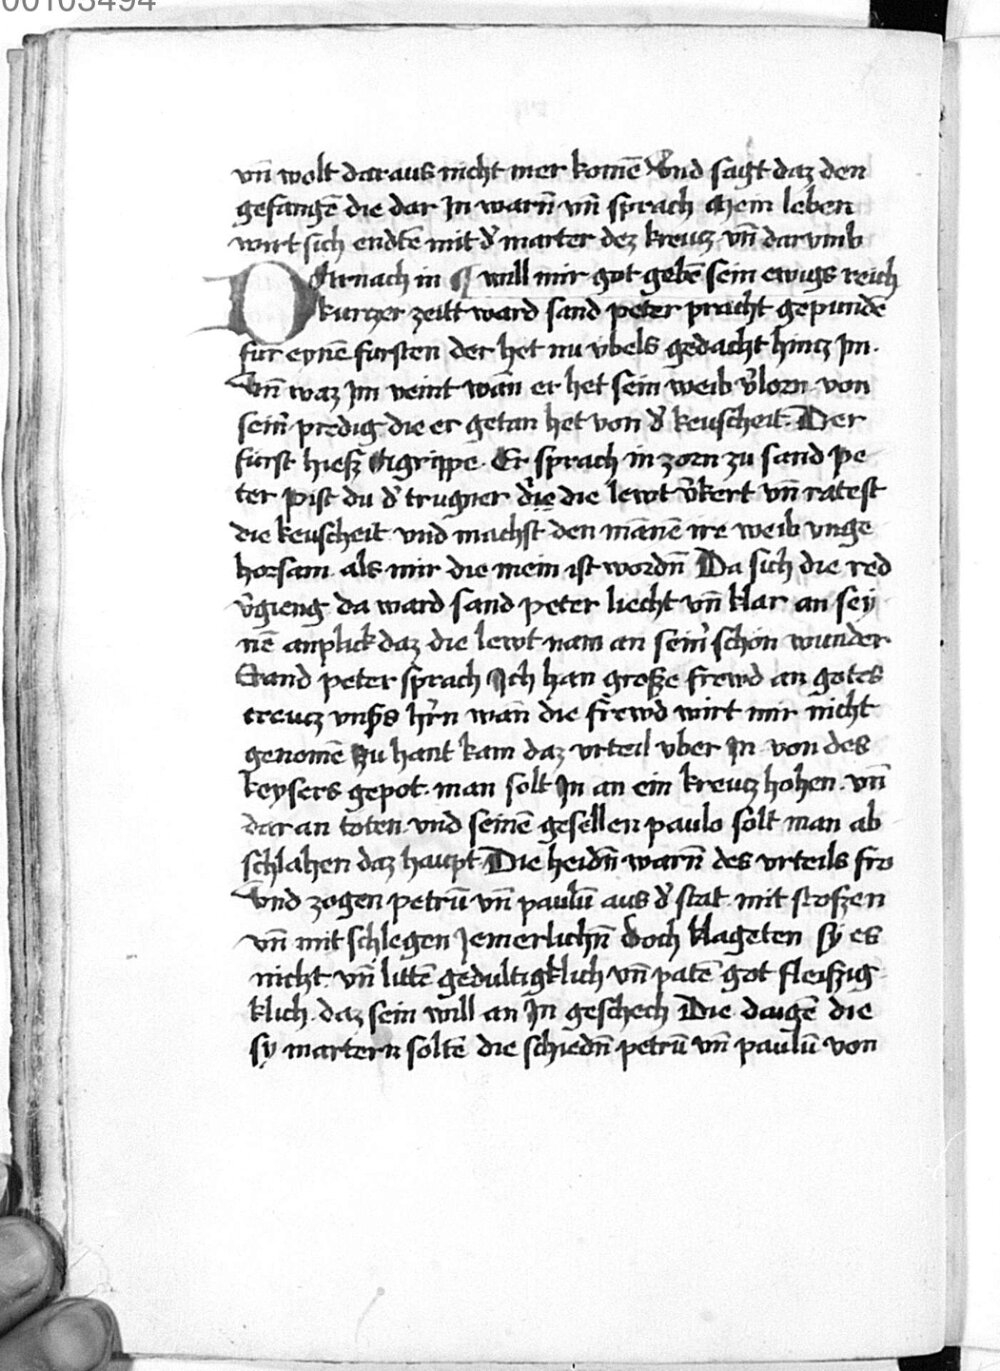 00103494
vn̄ wolt daraus nicht mer komē Vnd sagt daz den
gefangē die dar Jn warn̄ vn̄ sprach Mein leben
wirt sich endtē mit d̛ marter dez kreucz vn̄ darvmb
Darnach in ¶ will mir got gebē sein ewigs reich
kurczer zeitt ward sand peter pracht gepundē
fur eynē fursten der het nu vbels gedacht hincz Jm.
Vn̄ waz Jm veint wān er het sein weib v̛lorn von
sein̛ predig die er getan het von d̛ keuscheit. Der
furst hiesz Agrippe. Er sprach in zorn zu sand pe
ter Pist du d̛ trugner d̛ie die lewt v̛kert vn̄ ratest
die keuscheit vnd machst den mānē ire weib vnge
horsam als mir die mein ist wordn̄ Da sich die red
v̛gieng da ward sand peter liecht vn̄ klar an sey
nē anplick daz die lewt nam an sein̛ schon wunder
Sand peter sprach Jch han grosze frewd an gotes
creucz vnsers h̛rn wān die frewd wirt mir nicht
genomē Zu hant kam daz vrteil vber Jn von des
keysers gepot. man solt Jn an ein kreucz hohen. vn̄
dar an toten. vnd seinē gesellen paulo solt man ab
schlahen daz haupt Die heidn̄ warn̄ des vrteils fro
Vnd zogen petrū vn̄ paulū aus d̛ stat mit stoszen
vn̄ mit schlegen Jemerlichn̄ doch klageten sy es
nicht vn̄ littē gedultigklich vn̄ patē got fleiszig
klich. daz sein will an Jn geschech Die daigē die
sy martern soltē die schiedn̄ petrū vn̄ paulū von